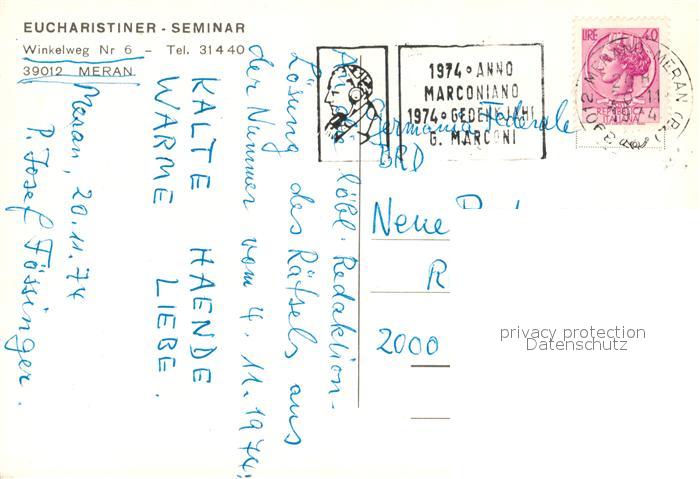 EUCHARISTINER - SEMINAR
Winkelweg Nr 6 - Tel. 31440
39012 MERAN
An die löbl. Redaktion.
Lösung des Rätsels aus
der Nummer vom 4. 11. 1974:
KALTE HAENDE
WARME LIEBE.
Meran, 20.11.74
P. Josef Tössinger.
1974 ANNO
MARCONIANO
1974 GEDENKJAHR
G. MARCONI
LIRE 40
ITALIA
MERANO MERAN
Germania Federale
BRD
Neue
R
2000
privacy protection
Datenschutz